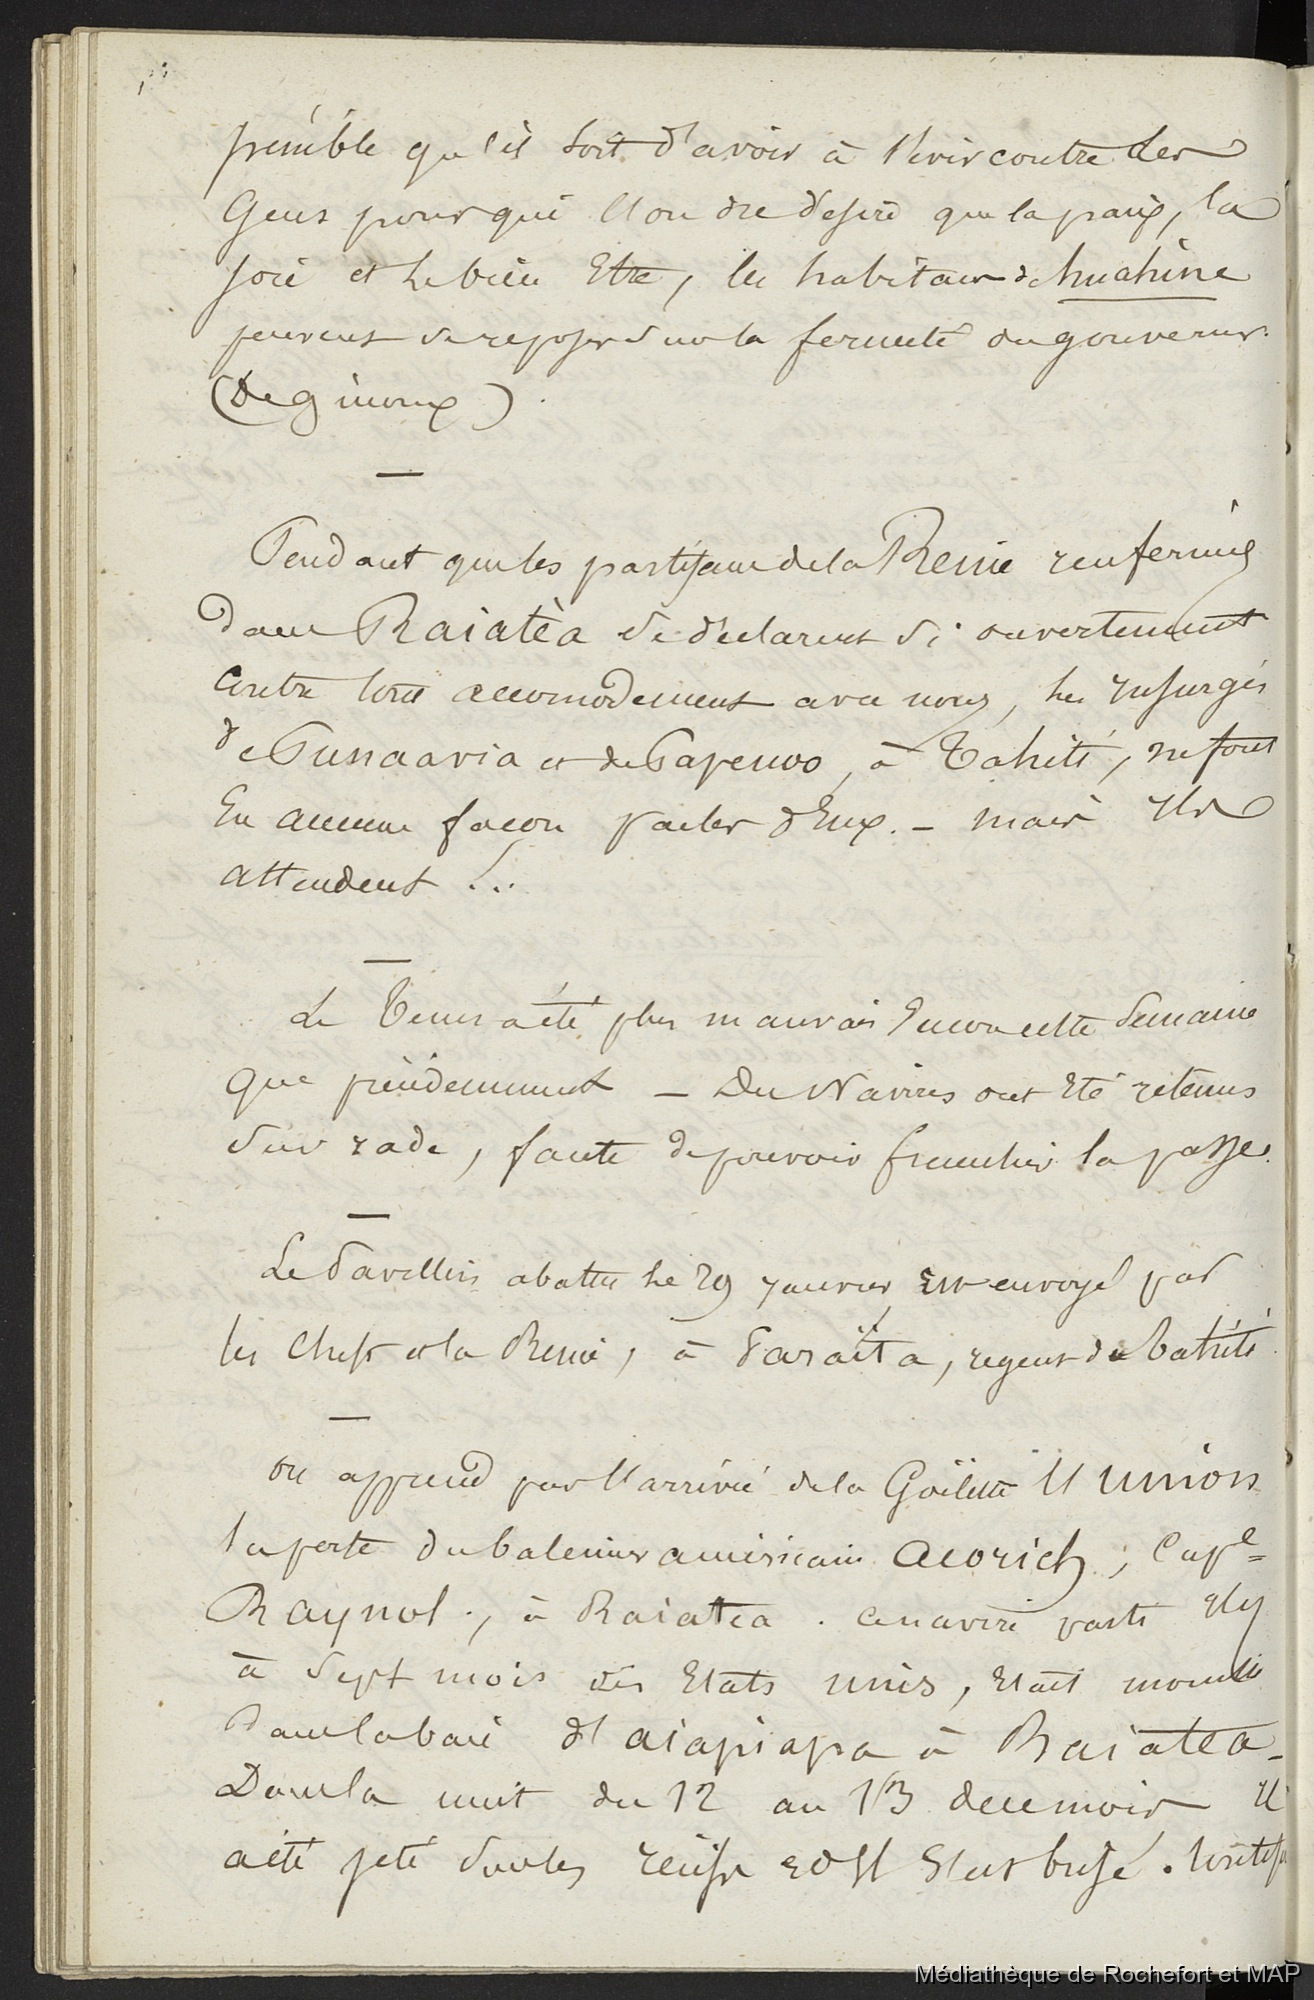 penible qu'il soit d'avoir à sévir contre des
Gens pour qui l'on ne desire que la paix, la
joie et le bien Etre, les habitans de huahine
peuvent se reposer sur la fermeté du gouverneur.
(De ginoux).
—
Pendant que les partisans de la Reine renfermés
dans Raiatèa se declarent si ouvertement
contre tout accomodement avec nous, les insurgés
de Punaavia et de Papenoo, à Tahiti, ne font
En aucune façon parler d'Eux. — mais ils
attendent !..
—
Le Tems a été plus mauvais Encore cette semaine
que précédemment — Des Navires ont Eté retenus
sur rade, faute de pouvoir franchir la passe.
—
Le Pavillon abattu le 29 janvier Est envoyé par
les Chefs et la Reine, à Paraïta, regent de Tahiti
—
on apprend par l'arrivée de la Goëlette l'union
la perte du baleinier américain acorich, Cape=
Raynol., à Raiatea. ce navire parti il y
à sept mois des Etats unis, Etait mouillé
dans la baie d'aiapiapa à Raiatea_
Dans la nuit du 12 au 13 decemoir il
a été jeté sur les récifs et s'est brisé.